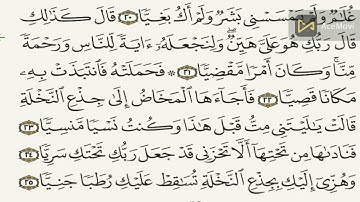 غُلَٰمٌ وَلَمْ يَمْسَسْنِى بَشَرٌ وَلَمْ أَكُ بَغِيًّا ٢٠ قَالَ كَذَٰلِكِ
AceMovi
قَالَ رَبُّكِ هُوَ عَلَىَّ هَيِّنٌ وَلِنَجْعَلَهُۥٓ ءَايَةً لِّلنَّاسِ وَرَحْمَةً
مِّنَّا وَكَانَ أَمْرًا مَّقْضِيًّا ٢١ ۞ فَحَمَلَتْهُ فَٱنتَبَذَتْ بِهِۦ
مَكَانًا قَصِيًّا ٢٢ فَأَجَآءَهَا ٱلْمَخَاضُ إِلَىٰ جِذْعِ ٱلنَّخْلَةِ
قَالَتْ يَٰلَيْتَنِى مِتُّ قَبْلَ هَٰذَا وَكُنتُ نَسْيًا مَّنسِيًّا ٢٣
فَنَادَىٰهَا مِن تَحْتِهَآ أَلَّا تَحْزَنِى قَدْ جَعَلَ رَبُّكِ تَحْتَكِ سَرِيًّا ٢٤
وَهُزِّىٓ إِلَيْكِ بِجِذْعِ ٱلنَّخْلَةِ تُسَٰقِطْ عَلَيْكِ رُطَبًا جَنِيًّا ٢٥